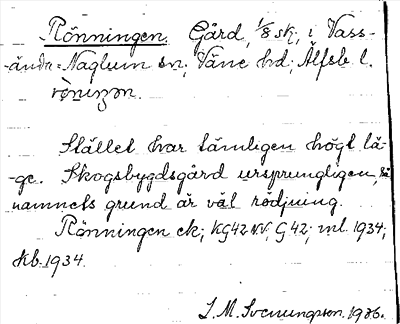 Rönningen. Gård, 1/8 sk; i Vass-
-ända-Naglum sn; Väne hd; Älfsb l.
Stället har tämligen högt lä-
-ge. Skogsbygdsgård ursprungligen, så
namnets grund är väl rödjning.
Rönningen ek; KG42 N.V. G42; ml. 1934;
kb. 1934.
J. M. Svenungsson. 1936.